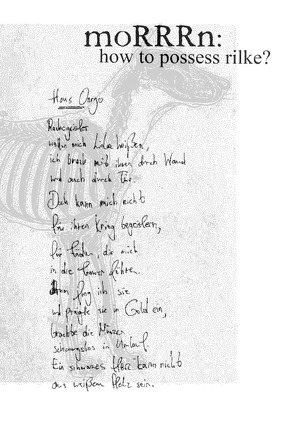 moRRRn:
how to possess rilke?
Hans
Rachegeister
mich Liebe heißen,
ich brach mit ihnen durch Wand
und auch durch Tür.
Doch kann mich nicht
für ihren Krieg begeistern,
für Fäden, die mich
in die führen.
fing ich sie
und prägte sie in Gold ein,
brachte die Münzen
schonungslos in Umlauf.
Ein schwarzes Herz kann nicht
aus weißem Holz sein.